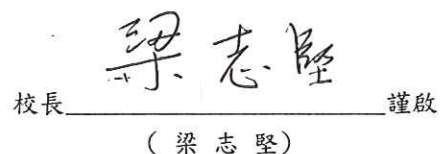 梁志堅
校長謹啟
(梁志堅)